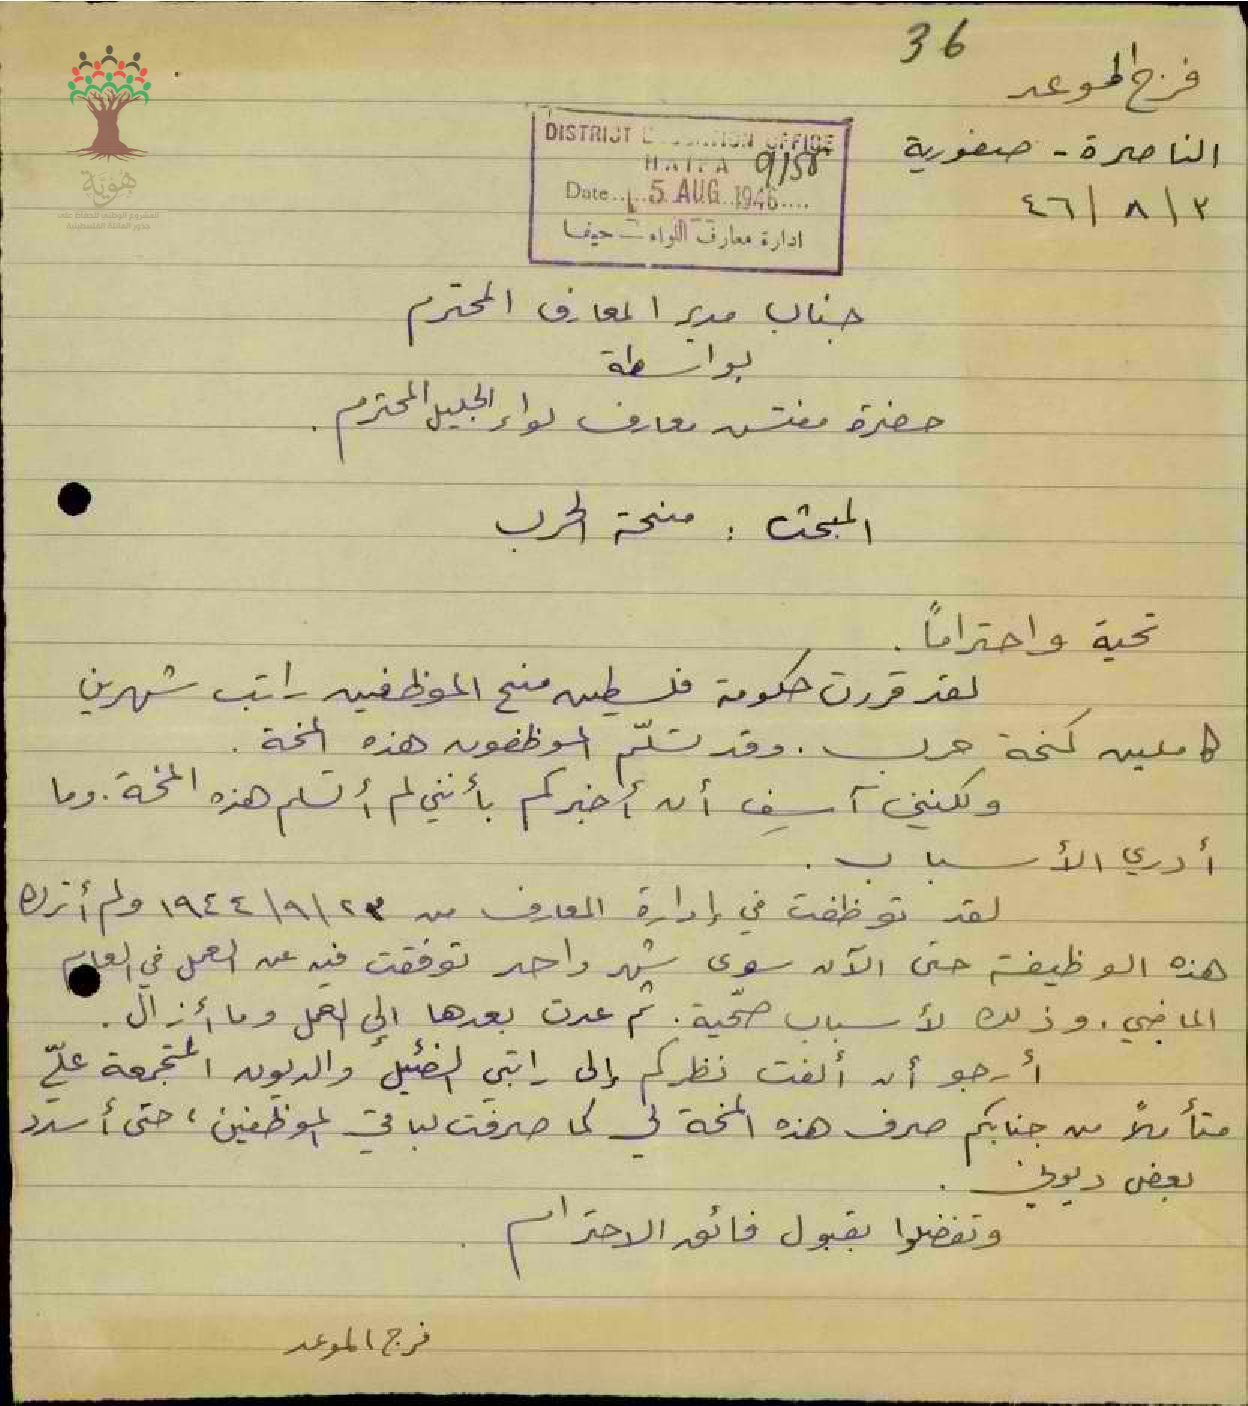 36
فرج الموعد
الناصرة - صفورية
٤٦/٨/٢
DISTRICT EDUCATION OFFICE
HAIFA
9/58
Date 5 AUG 1946
ادارة معارف اللواء - حيفا
هوية
المشروع الوطني للحفاظ على
جذور العائلة الفلسطينية
جناب مدير المعارف المحترم
بواسطة
حضرة مفتش معارف لواء الجليل المحترم .
المبحث : منحة الحرب
تحية واحتراماً .
لقد قررت حكومة فلسطين منح الموظفين راتب شهرين
كاملين كمنحة حرب . وقد تسلّم الموظفون هذه المنحة .
ولكنني آسف أن أخبركم بأنني لم أتسلم هذه المنحة . وما
أدري الأسباب .
لقد توظفت في إدارة المعارف من ١٩٤٤/٩/٢٣ ولم أترك
هذه الوظيفة حتى الآن سوى شهر واحد توقفت فيه عن العمل في العام
الماضي . وذلك لأسباب صحّية . ثم عدت بعدها إلى العمل وما أزال .
أرجو أن ألفت نظركم إلى راتبي الضئيل والديون المتجمعة عليّ
متأملاً من جنابكم صرف هذه المنحة لي كما صرفت لباقي الموظفين ، حتى أسدد
بعض ديوني .
وتفضلوا بقبول فائق الاحترام .
فرج الموعد